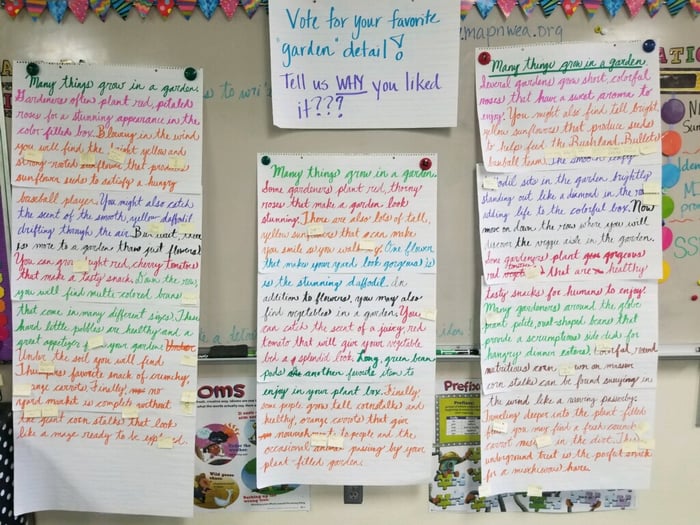 Vote for your favorite
"garden" detail!
Tell us WHY you liked
it???
mapnwea.org
Many things grow in a garden.
Gardeners often plant red, petaled
roses for a stunning appearance in the
color-filled box. Blowing in the wind
you will find the bright yellow and
strong-rooted sunflower that produces
sunflower seeds to satisfy a hungry
baseball player. You might also catch
the scent of the smooth, yellow daffodil
drifting though the air. But wait, there
is more to a garden than just flowers!
You can grow bright red, cherry tomatoes
that make a tasty snack. Down the row
you will find multi-colored beans
that come in many different sizes. These
hard little pebbles are healthy and a
great appetizer from your garden.
Under the soil you will find
favorite snack of crunchy,
orange carrots. Finally, no
market is complete without
the giant corn stalks that look
like a maze ready to be explored.
Many things grow in a garden.
Some gardeners plant red, thorny
roses that make a garden look
stunning. There are also lots of tall,
yellow sunflowers that can make
you smile as you walk by. One flower
that makes your yard look gorgeous is
is the stunning daffodil. In
addition to flowers, you may also
find vegetables in a garden. You
can catch the scent of a juicy red
tomato that will give your vegetable
bed a splendid look. Long, green bean
pods are another favorite item to
enjoy in your plant box. Finally,
some people grow tall cornstalks and
healthy, orange carrots that give
nourishment to people and the
occasional animal passing by your
plant filled garden.
Many things grow in a garden.
Several gardens grow short, colorful
roses that have a sweet aroma to
enjoy! You might also find tall bright
yellow sunflowers that produce seeds
to help feed the Rushland Bullets
baseball team. The smooth
daffodil sits in the garden brightly
standing out like a diamond in the
adding life to the colorful box. Now
move on down the rows where you will
discover the veggie aisle in the garden.
Some gardeners plant gorgeous
red tomatoes that are healthy
tasty snacks for humans to enjoy!
Many gardeners around the globe
plant petite, oval-shaped beans that
provide a scrumptious side dish for
hungry dinner eaters!
nutritious corn
corn stalks can be found swaying in
the wind like a waving passerby.
Traveling deeper into the plant filled
you may find a fresh
carrot in the dirt. This
underground treat is the perfect snack
for a mischievous hare.